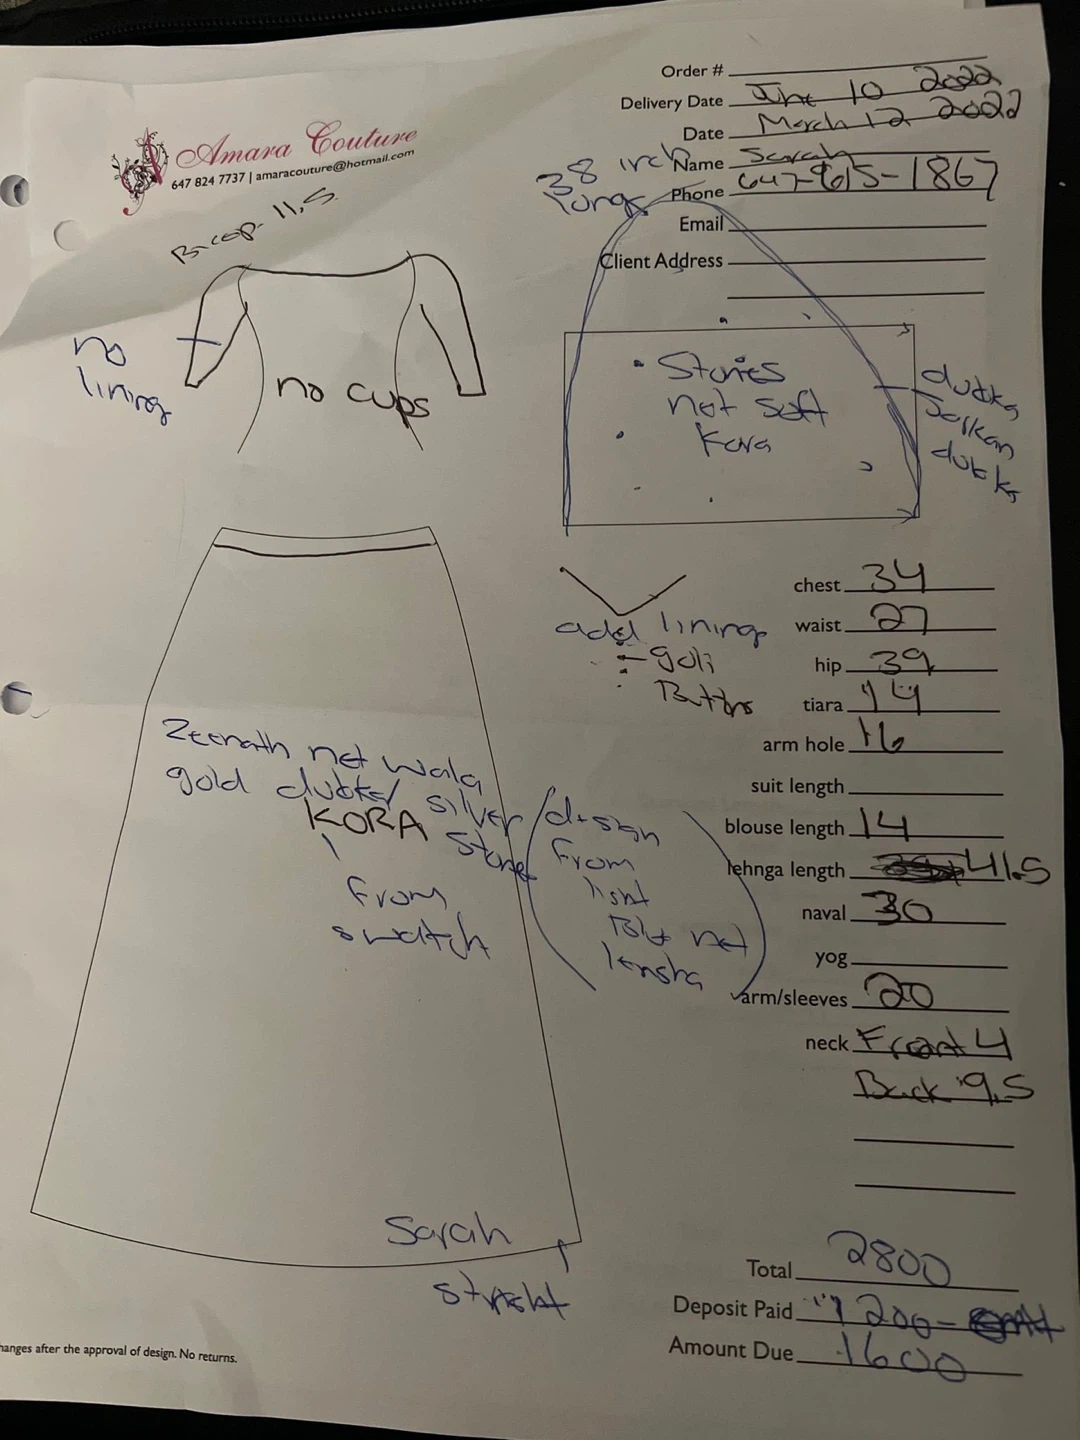 Order #
Delivery Date June 10 2022
Date March 12 2022
Amara Couture
647 824 7737 | amaracouture@hotmail.com
Name Sarah
Phone 647-965-1867
Email
Client Address
38 inch
long
B-cap- 11.5
no
lining
no cups
Stones
not soft
Kora
dubka
Salkan
dubka
add lining
- goli
Buttons
chest 34
waist 27
hip 39
tiara 14
arm hole 16
suit length
blouse length 14
lehnga length 41.5
naval 30
yog
arm/sleeves 20
neck Front 4
Back 9.5
Zeenath net wala
gold dubka/ silver
KORA stones
from
swatch
design
from
light
net
Sarah
Total 2800
Deposit Paid 1200-
Amount Due 1600
hanges after the approval of design. No returns.